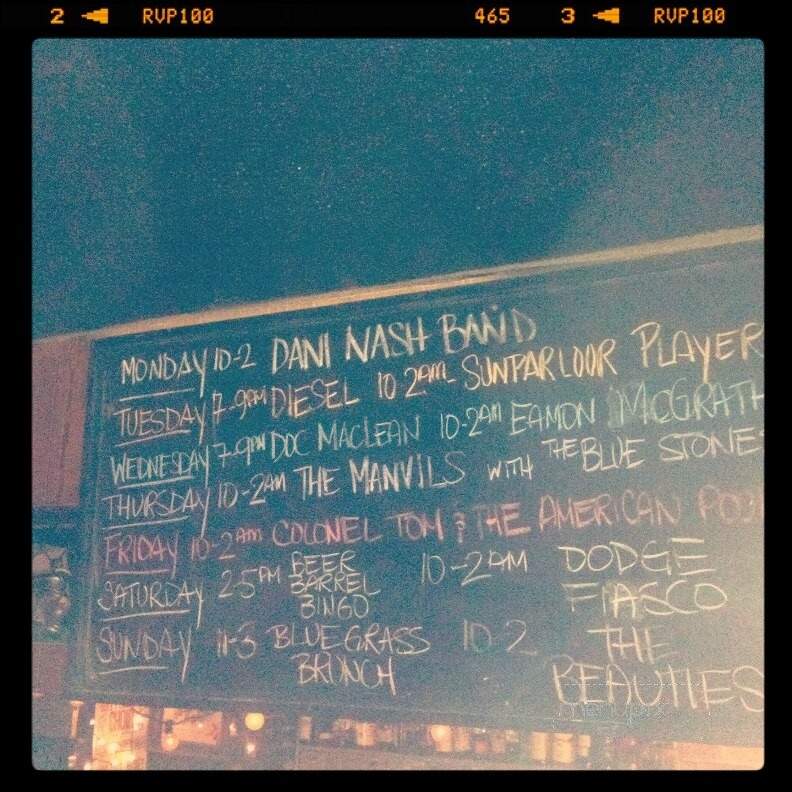 2 RVP100 465 3 RVP100
MONDAY 10-2 DANI NASH BAND
TUESDAY 7-9PM DIESEL 10 2AM SUNPARLOUR PLAYER
WEDNESDAY 7-9PM DOC MACLEAN 10-2AM EAMON MCGRATH
THURSDAY 10-2AM THE MANVILS WITH THE BLUE STONES
FRIDAY 10-2AM COLONEL TOM & THE AMERICAN
SATURDAY 2-5PM BEER BARREL BINGO 10-2AM DODGE FIASCO
SUNDAY 11-3 BLUEGRASS BRUNCH 10-2 THE BEAUTIES